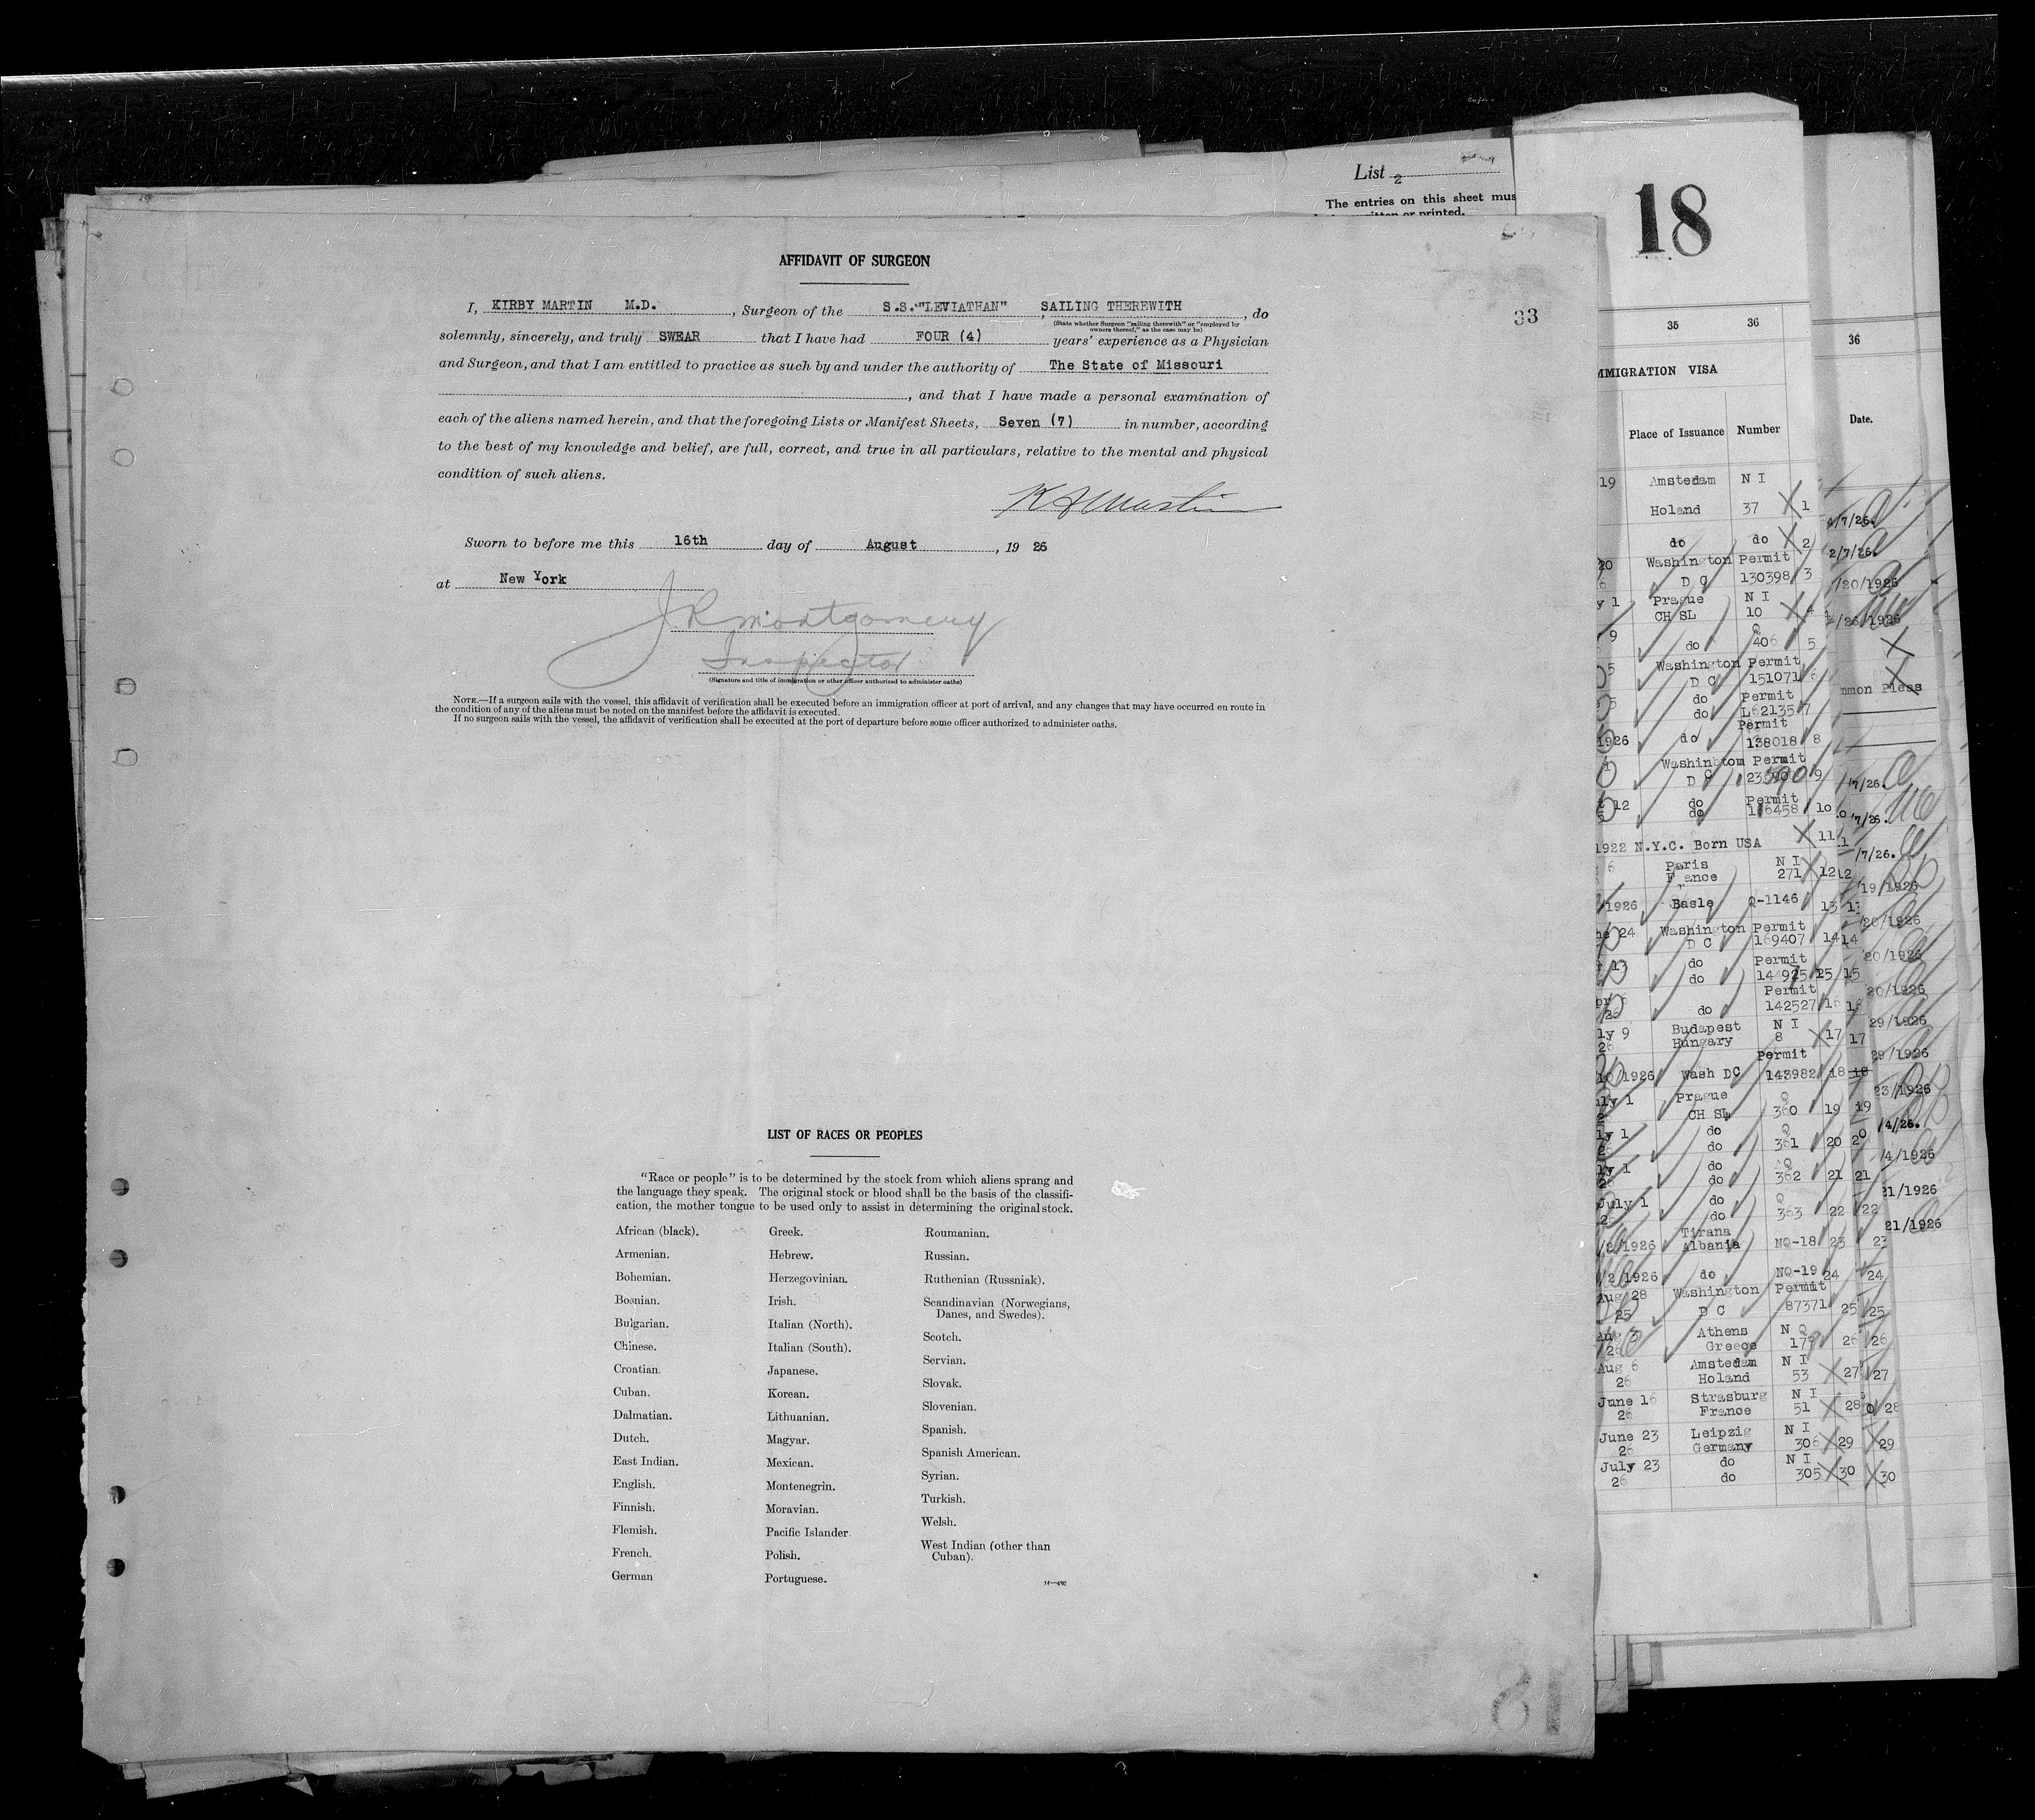 List 2
The entries on this sheet mus
18
AFFIDAVIT OF SURGEON
33
I, KIRBY MARTIN M.D., Surgeon of the S.S."LEVIATHAN", SAILING THEREWITH, do
(State whether Surgeon "sailing therewith" or "employed by
owners thereof," as the case may be)
solemnly, sincerely, and truly SWEAR that I have had FOUR (4) years' experience as a Physician
and Surgeon, and that I am entitled to practice as such by and under the authority of The State of Missouri
, and that I have made a personal examination of
each of the aliens named herein, and that the foregoing Lists or Manifest Sheets, Seven (7) in number, according
to the best of my knowledge and belief, are full, correct, and true in all particulars, relative to the mental and physical
condition of such aliens.
K A Martin
Sworn to before me this 16th day of August, 19 26
at New York
J R Montgomery
Inspector
(Signature and title of immigration or other officer authorized to administer oaths)
NOTE.—If a surgeon sails with the vessel, this affidavit of verification shall be executed before an immigration officer at port of arrival, and any changes that may have occurred en route in
the condition of any of the aliens must be noted on the manifest before the affidavit is executed.
If no surgeon sails with the vessel, the affidavit of verification shall be executed at the port of departure before some officer authorized to administer oaths.
LIST OF RACES OR PEOPLES
"Race or people" is to be determined by the stock from which aliens sprang and
the language they speak. The original stock or blood shall be the basis of the classifi-
cation, the mother tongue to be used only to assist in determining the original stock.
African (black).
Armenian.
Bohemian.
Bosnian.
Bulgarian.
Chinese.
Croatian.
Cuban.
Dalmatian.
Dutch.
East Indian.
English.
Finnish.
Flemish.
French.
German
Greek.
Hebrew.
Herzegovinian.
Irish.
Italian (North).
Italian (South).
Japanese.
Korean.
Lithuanian.
Magyar.
Mexican.
Montenegrin.
Moravian.
Pacific Islander.
Polish.
Portuguese.
Roumanian.
Russian.
Ruthenian (Russniak).
Scandinavian (Norwegians,
Danes, and Swedes).
Scotch.
Servian.
Slovak.
Slovenian.
Spanish.
Spanish American.
Syrian.
Turkish.
Welsh.
West Indian (other than
Cuban).
35 36
MMIGRATION VISA
Place of Issuance Number
19 Amstedam N I
Holand 37 1
do do 2
20 Washington Permit
D C 130398 3
y 1 Prague N I
CH SL 10 4
9 do Q 406 5
5 Washington Permit
D C 151071 6
5 do Permit
do L62135 7
Permit
1926 do 138018 8
Washington Permit
D C 9
12 do Permit
do 116458 10
1922 N.Y.C. Born USA 11
6 Paris N I
F ance 271 12
1926 Basle Q-1146 13
24 Washington Permit
D C 169407 14
13 do Permit
do 144925 15
Permit
do 142527 16
ly 9 Budapest N I
26 Hungary 8 17
Permit
10/1926 Wash DC 143982 18
uly 1 Prague Q
CH SL 360 19
ly 1 do Q
do 361 20
ly 1 do Q
do 362 21
July 1 do Q
26 do 363 22
Tirana
/2/1926 Albania NQ-18 23
/2/1926 do NQ-19 24
Aug 28 Washington Permit
25 D C 87371 25
Aug 3 Athens N Q
26 Greece 177 26
Aug 6 Amstedam N I
26 Holand 53 27
June 16 Strasburg N I
26 France 51 28
June 23 Leipzig N I
26 Germany 306 29
July 23 do N I
26 do 305 30
36
Date.
4/7/26.
2/7/26.
/20/1926
/26/1926
mmon Pleas
/7/26.
/7/26.
/7/26.
/19/1926
/20/1926
20/1926
20/1926
29/1926
29/1926
23/1926
/4/26.
/4/1926
21/1926
21/1926